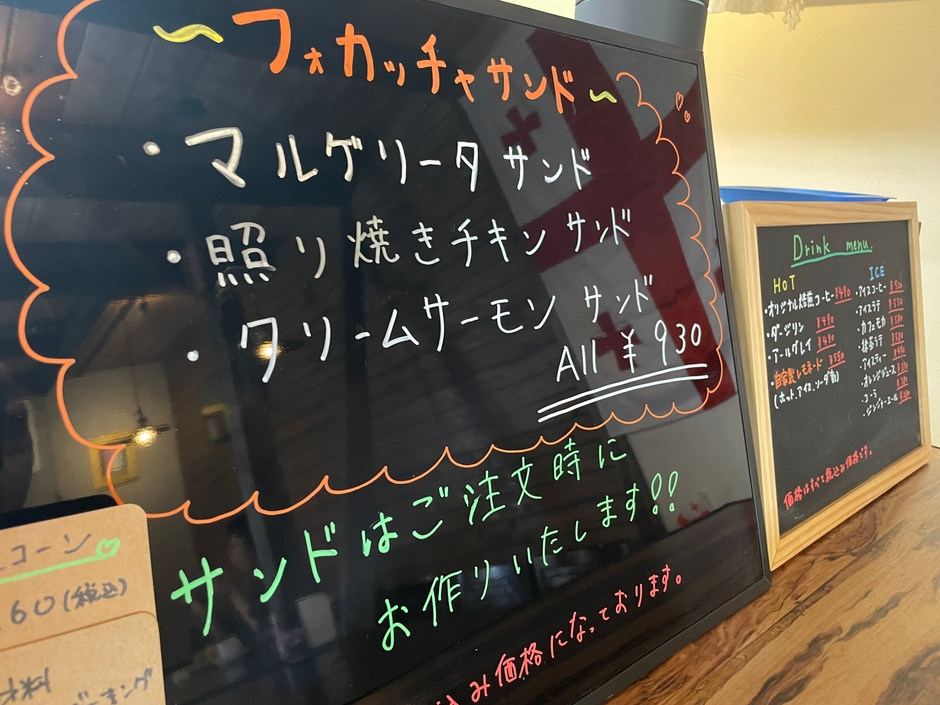 ～フォカッチャサンド～
・マルゲリータサンド
・照り焼きチキンサンド
・クリームサーモンサンド
All ¥930
サンドはご注文時に
お作りいたします!!
込み価格になっております。
コーン
60(税込)
Drink menu.
HOT
・オリジナル焙煎コーヒー ¥490
・ダージリン ¥490
・アールグレイ ¥490
・自家製レモネード ¥550
(ホット、アイス、ソーダ割)
ICE
・アイスコーヒー
・アイスラテ ¥550
・カフェモカ
・抹茶ラテ
・アイスティー
・オレンジジュース
・コーラ
・ジンジャーエール
価格はすべて税込み価格です。